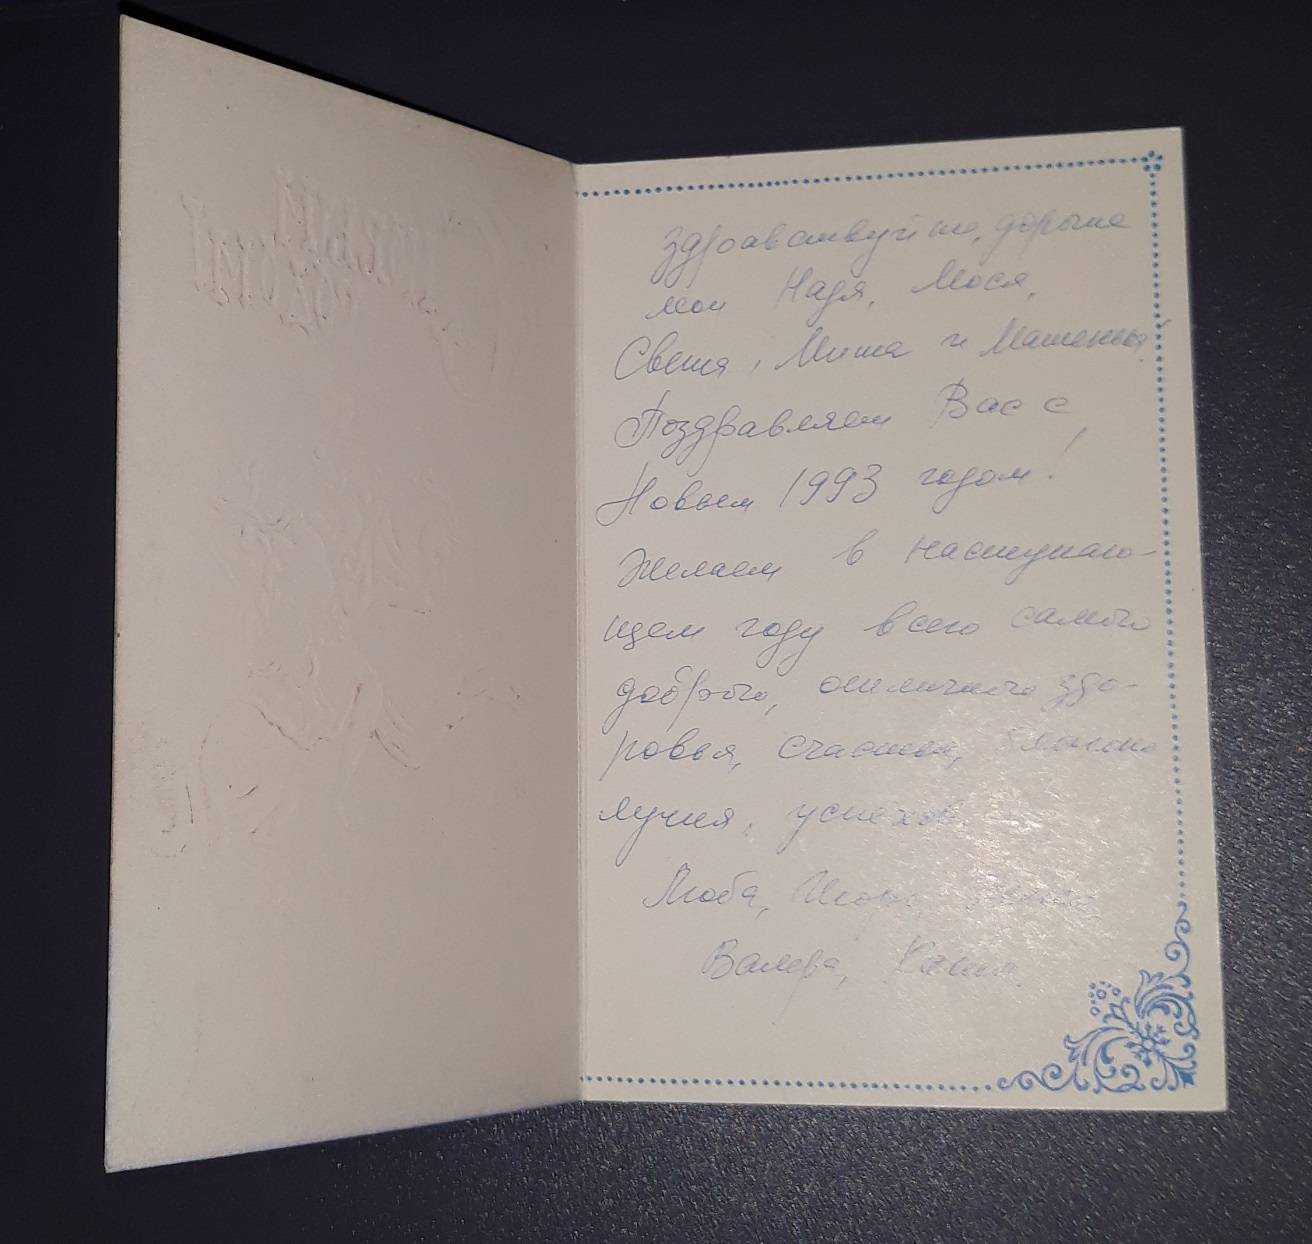 С новым
годом!
Здравствуйте, дорогие
мои Надя, Мося,
Света, Миша и Машенька!
Поздравляем Вас с
Новым 1993 годом!
Желаем в наступаю-
щем году всего самого
доброго, отличного здо-
ровья, счастья,
лучия, успехов.
Люба, Игорь,
Валера, Ксюша